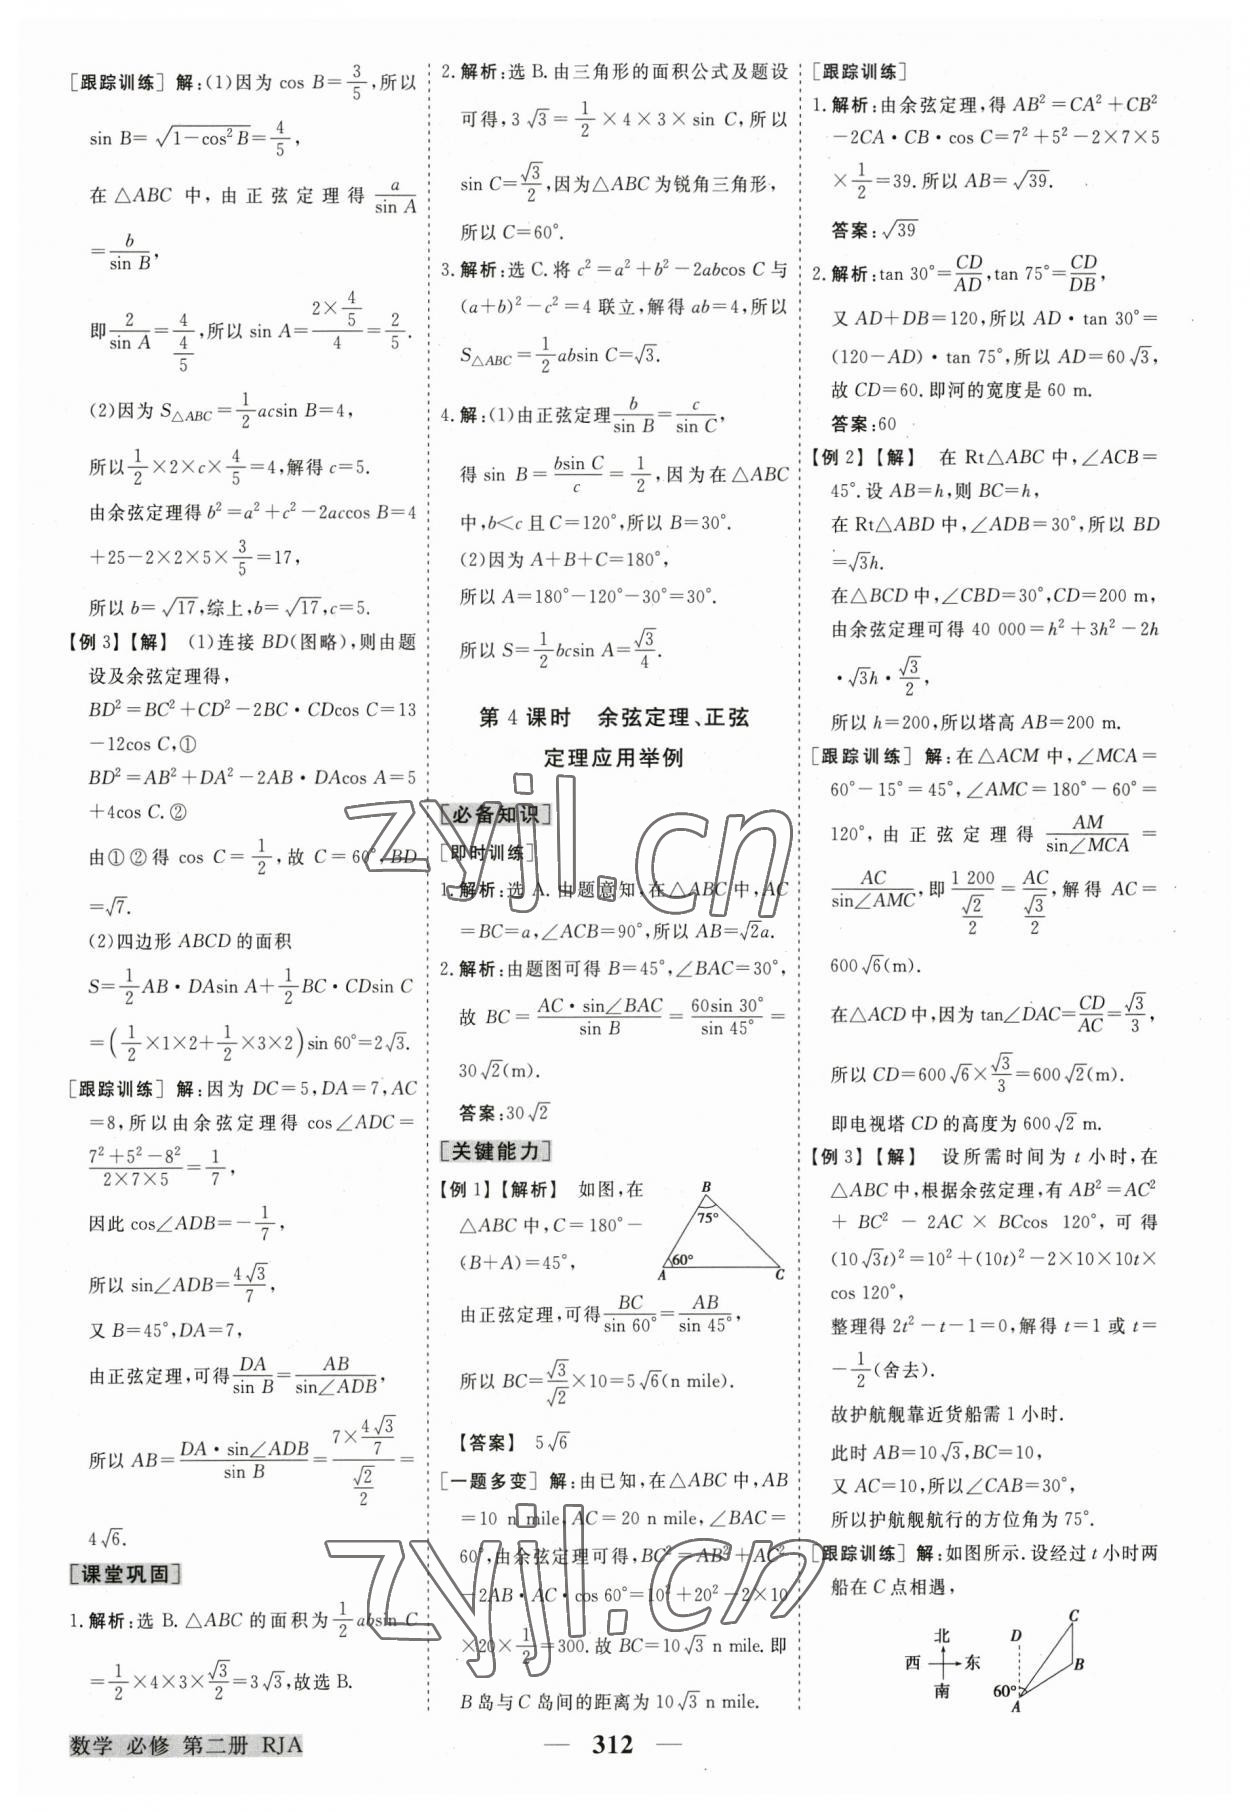 [跟踪训练] 解:(1)因为 cos B=3/5,所以
sin B=√(1-cos²B)=4/5,
在 △ABC 中,由正弦定理得 a/sin A
=b/sin B,
即 2/sin A=4/(4/5),所以 sin A=(2×4/5)/4=2/5.
(2)因为 S△ABC=1/2 acsin B=4,
所以 1/2×2×c×4/5=4,解得 c=5.
由余弦定理得 b²=a²+c²-2accos B=4
+25-2×2×5×3/5=17,
所以 b=√17,综上,b=√17,c=5.
【例 3】【解】 (1)连接 BD(图略),则由题
设及余弦定理得,
BD²=BC²+CD²-2BC·CDcos C=13
-12cos C,①
BD²=AB²+DA²-2AB·DAcos A=5
+4cos C.②
由①②得 cos C=1/2,故 C=60°,BD
=√7.
(2)四边形 ABCD 的面积
S=1/2 AB·DAsin A+1/2 BC·CDsin C
=(1/2×1×2+1/2×3×2)sin 60°=2√3.
[跟踪训练] 解:因为 DC=5,DA=7,AC
=8,所以由余弦定理得 cos∠ADC=
(7²+5²-8²)/(2×7×5)=1/7,
因此 cos∠ADB=-1/7,
所以 sin∠ADB=4√3/7,
又 B=45°,DA=7,
由正弦定理,可得 DA/sin B=AB/sin∠ADB,
所以 AB=DA·sin∠ADB/sin B=(7×4√3/7)/(√2/2)=
4√6.
[课堂巩固]
1.解析:选 B.△ABC 的面积为 1/2 absin C
=1/2×4×3×√3/2=3√3,故选 B.
2.解析:选 B.由三角形的面积公式及题设
可得,3√3=1/2×4×3×sin C,所以
sin C=√3/2,因为△ABC 为锐角三角形,
所以 C=60°.
3.解析:选 C.将 c²=a²+b²-2abcos C 与
(a+b)²-c²=4 联立,解得 ab=4,所以
S△ABC=1/2 absin C=√3.
4.解:(1)由正弦定理 b/sin B=c/sin C,
得 sin B=bsin C/c=1/2,因为在△ABC
中,b<c 且 C=120°,所以 B=30°.
(2)因为 A+B+C=180°,
所以 A=180°-120°-30°=30°.
所以 S=1/2 bcsin A=√3/4.
第 4 课时 余弦定理、正弦
定理应用举例
[必备知识]
[即时训练]
1.解析:选 A.由题意知,在△ABC 中,AC
=BC=a,∠ACB=90°,所以 AB=√2a.
2.解析:由题图可得 B=45°,∠BAC=30°,
故 BC=AC·sin∠BAC/sin B=60sin 30°/sin 45°=
30√2(m).
答案:30√2
[关键能力]
【例 1】【解析】 如图,在
△ABC 中,C=180°-
(B+A)=45°,
B
75°
60°
A
C
由正弦定理,可得 BC/sin 60°=AB/sin 45°,
所以 BC=√3/√2×10=5√6(n mile).
【答案】 5√6
[一题多变] 解:由已知,在△ABC 中,AB
=10 n mile,AC=20 n mile,∠BAC=
60°,由余弦定理可得,BC²=AB²+AC²
-2AB·AC·cos 60°=10²+20²-2×10
×20×1/2=300.故 BC=10√3 n mile.即
B 岛与 C 岛间的距离为 10√3 n mile.
[跟踪训练]
1.解析:由余弦定理,得 AB²=CA²+CB²
-2CA·CB·cos C=7²+5²-2×7×5
×1/2=39.所以 AB=√39.
答案:√39
2.解析:tan 30°=CD/AD,tan 75°=CD/DB,
又 AD+DB=120,所以 AD·tan 30°=
(120-AD)·tan 75°,所以 AD=60√3,
故 CD=60.即河的宽度是 60 m.
答案:60
【例 2】【解】 在 Rt△ABC 中,∠ACB=
45°.设 AB=h,则 BC=h,
在 Rt△ABD 中,∠ADB=30°,所以 BD
=√3h.
在△BCD 中,∠CBD=30°,CD=200 m,
由余弦定理可得 40 000=h²+3h²-2h
·√3h·√3/2,
所以 h=200,所以塔高 AB=200 m.
[跟踪训练] 解:在△ACM 中,∠MCA=
60°-15°=45°,∠AMC=180°-60°=
120°,由正弦定理得 AM/sin∠MCA=
AC/sin∠AMC,即 1 200/(√2/2)=AC/(√3/2),解得 AC=
600√6(m).
在△ACD 中,因为 tan∠DAC=CD/AC=√3/3,
所以 CD=600√6×√3/3=600√2(m).
即电视塔 CD 的高度为 600√2 m.
【例 3】【解】 设所需时间为 t 小时,在
△ABC 中,根据余弦定理,有 AB²=AC²
+BC²-2AC×BCcos 120°,可得
(10√3t)²=10²+(10t)²-2×10×10t×
cos 120°,
整理得 2t²-t-1=0,解得 t=1 或 t=
-1/2(舍去).
故护航舰靠近货船需 1 小时.
此时 AB=10√3,BC=10,
又 AC=10,所以∠CAB=30°,
所以护航舰航行的方位角为 75°.
[跟踪训练] 解:如图所示.设经过 t 小时两
船在 C 点相遇,
北
西 东
南
D
C
B
60°
A
zyjl.cn
zyjl.cn
数学 必修 第二册 RJA
— 312 —